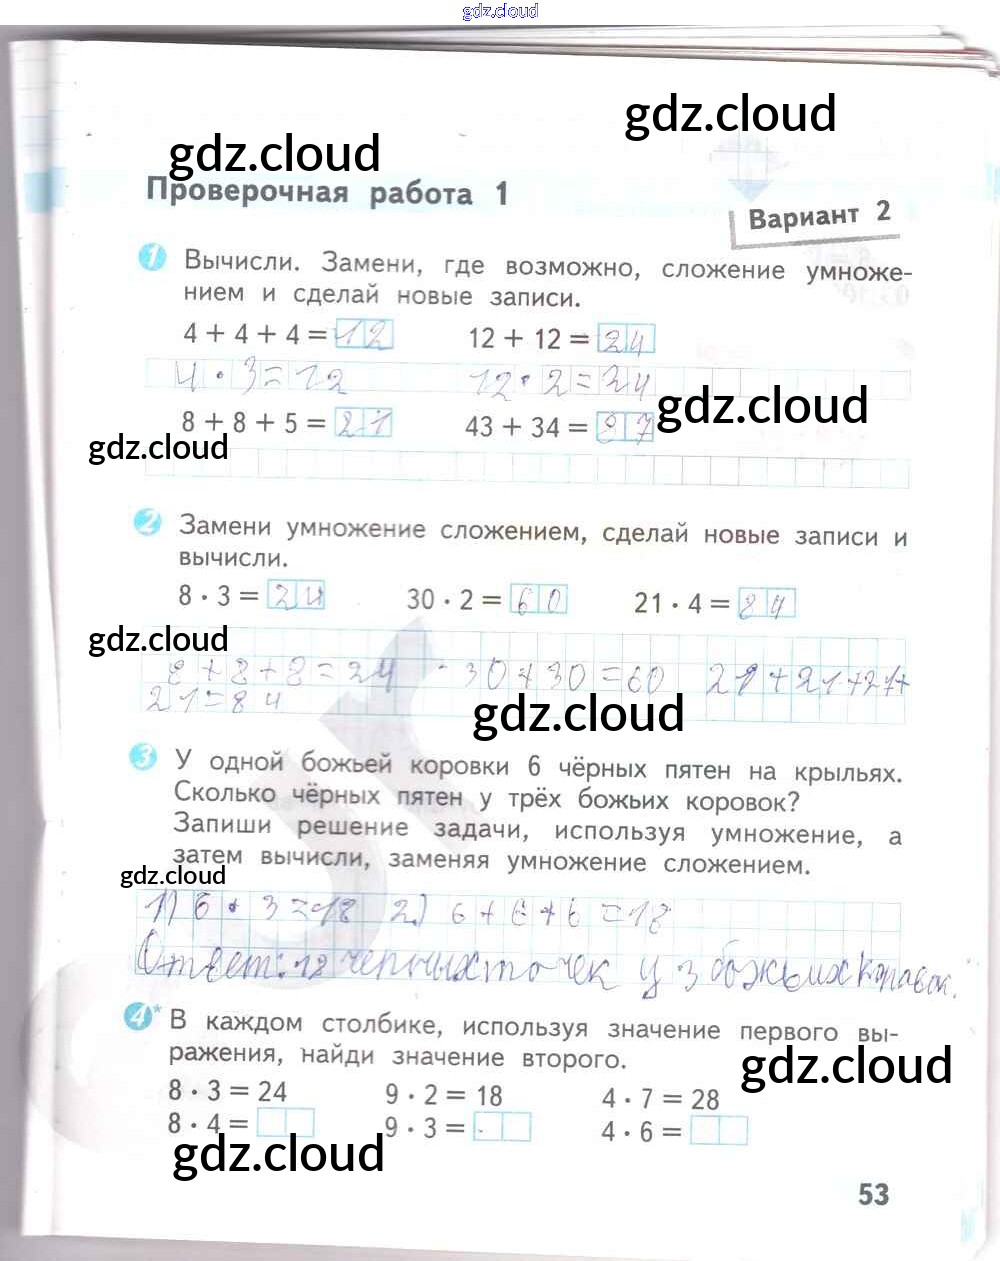 gdz.cloud
gdz.cloud
gdz.cloud
Проверочная работа 1
Вариант 2
1 Вычисли. Замени, где возможно, сложение умноже-
нием и сделай новые записи.
4 + 4 + 4 = 12 12 + 12 = 24
4 · 3 = 12 12 · 2 = 24
gdz.cloud
8 + 8 + 5 = 21 43 + 34 = 87
gdz.cloud
2 Замени умножение сложением, сделай новые записи и
вычисли.
8 · 3 = 24 30 · 2 = 60 21 · 4 = 84
gdz.cloud
8 + 8 + 8 = 24 30 + 30 = 60 21 + 21 + 21 +
21 = 84
gdz.cloud
3 У одной божьей коровки 6 чёрных пятен на крыльях.
Сколько чёрных пятен у трёх божьих коровок?
Запиши решение задачи, используя умножение, а
затем вычисли, заменяя умножение сложением.
gdz.cloud
1) 6 · 3 = 18 2) 6 + 6 + 6 = 18
Ответ: 18 черных точек у 3 божьих коравок.
4* В каждом столбике, используя значение первого вы-
ражения, найди значение второго.
gdz.cloud
8 · 3 = 24 9 · 2 = 18 4 · 7 = 28
8 · 4 = 9 · 3 = 4 · 6 =
gdz.cloud
53